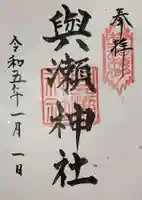 奉拝
與瀬神社
令和五年一月一日